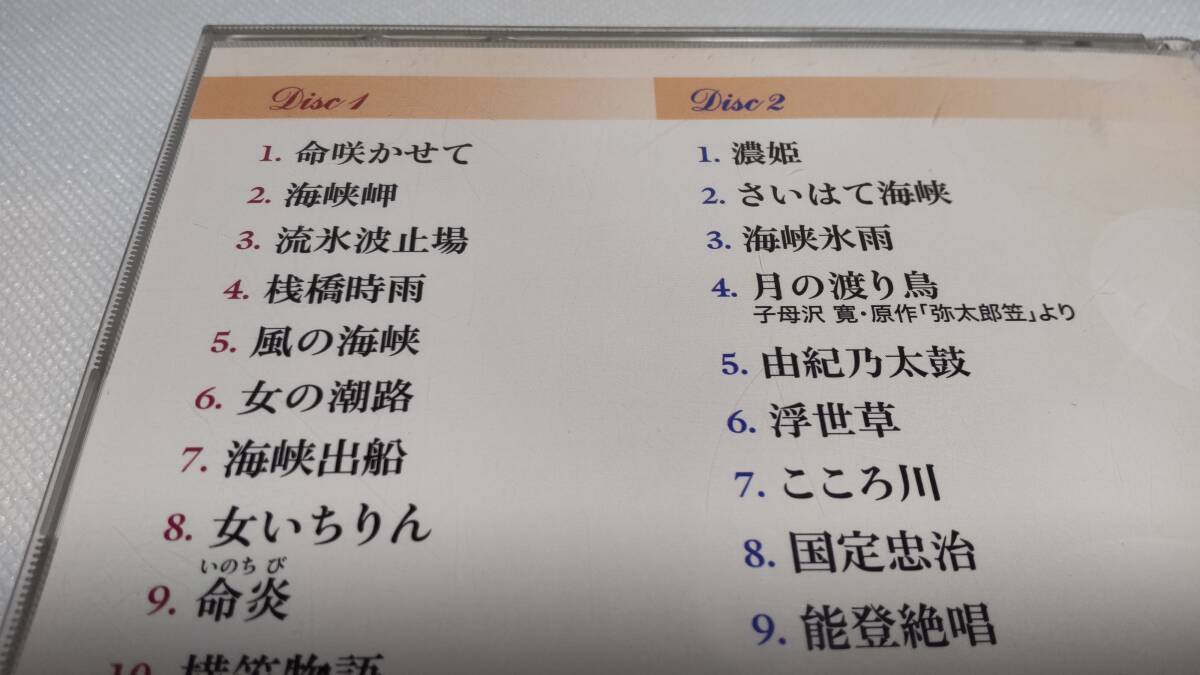 Disc 1
1. 命咲かせて
2. 海峡岬
3. 流氷波止場
4. 桟橋時雨
5. 風の海峡
6. 女の潮路
7. 海峡出船
8. 女いちりん
いのち び
9. 命炎
10. 横笛物語
Disc 2
1. 濃姫
2. さいはて海峡
3. 海峡氷雨
4. 月の渡り鳥
子母沢 寛・原作「弥太郎笠」より
5. 由紀乃太鼓
6. 浮世草
7. こころ川
8. 国定忠治
9. 能登絶唱